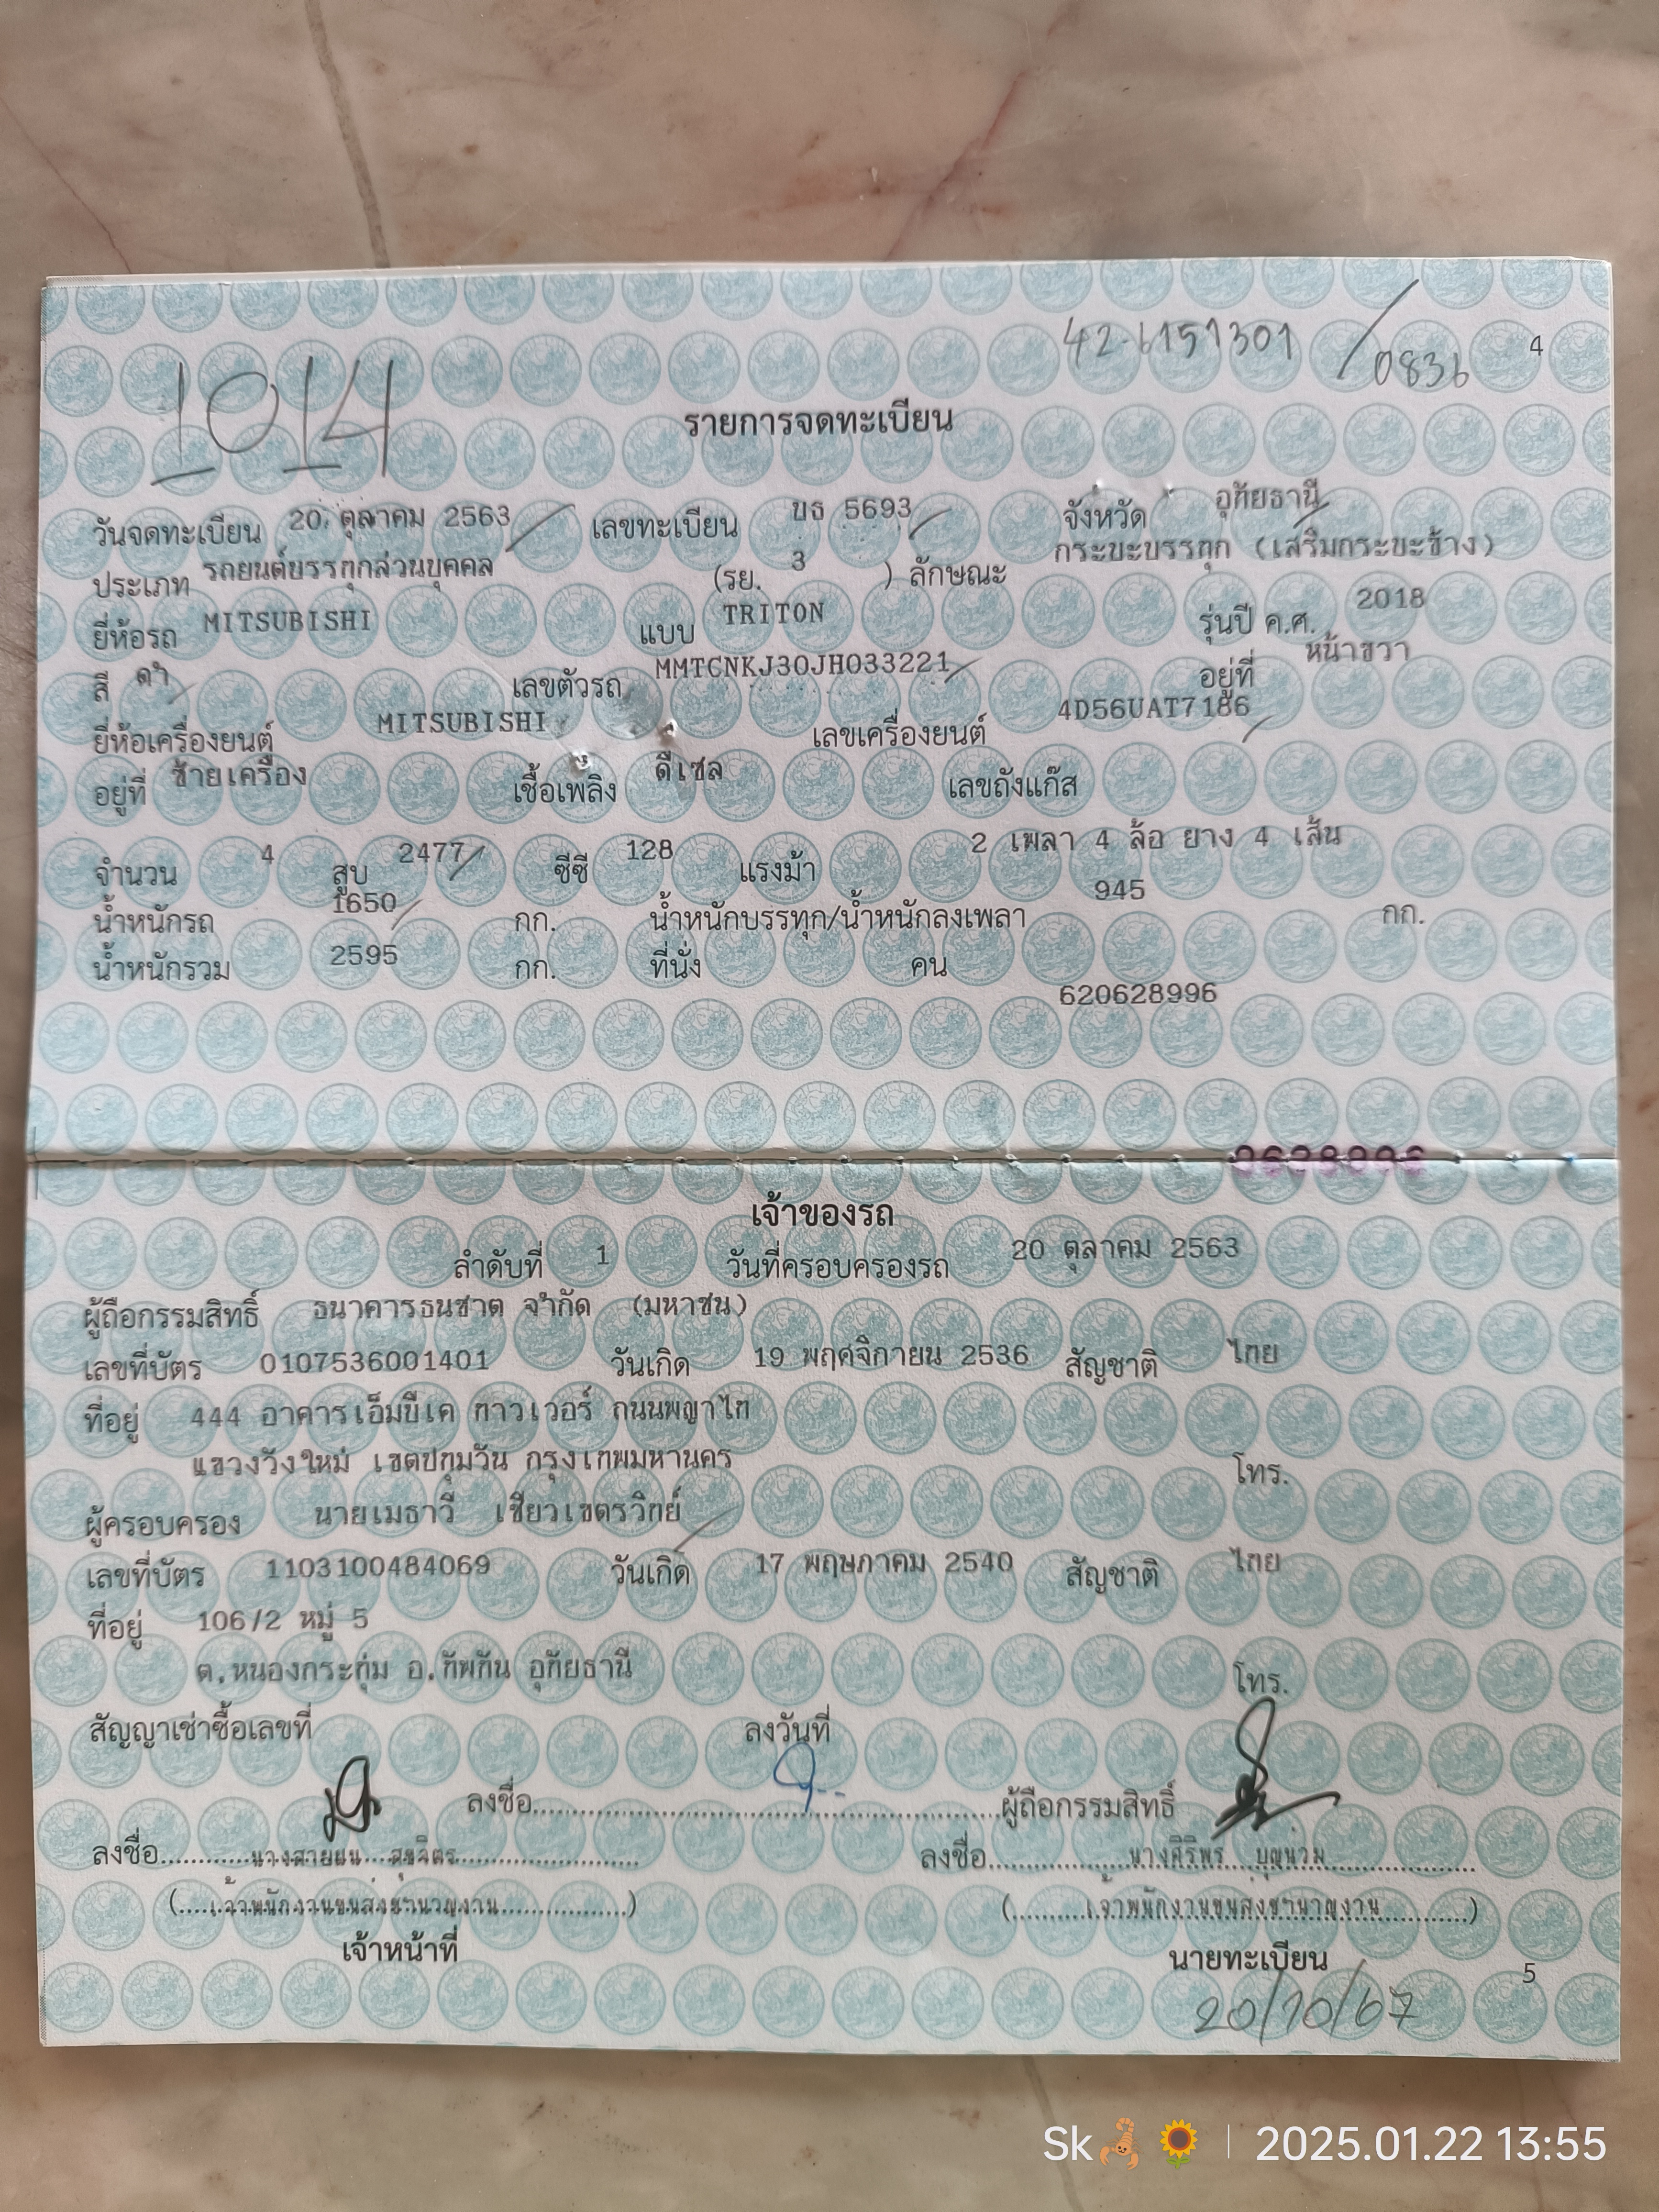 42-6151301 / 0836
4
1014
รายการจดทะเบียน
วันจดทะเบียน 20 ตุลาคม 2563 เลขทะเบียน บธ 5693 จังหวัด อุทัยธานี
ประเภท รถยนต์บรรทุกส่วนบุคคล (รย. 3 ) ลักษณะ กระบะบรรทุก (เสริมกระบะข้าง)
ยี่ห้อรถ MITSUBISHI แบบ TRITON รุ่นปี ค.ศ. 2018
สี ดำ เลขตัวรถ MMTCNKJ30JH033221 อยู่ที่ หน้าขวา
ยี่ห้อเครื่องยนต์ MITSUBISHI เลขเครื่องยนต์ 4D56UAT7186
อยู่ที่ ซ้ายเครื่อง เชื้อเพลิง ดีเซล เลขถังแก๊ส
จำนวน 4 สูบ 2477 ซีซี 128 แรงม้า 2 เพลา 4 ล้อ ยาง 4 เส้น
น้ำหนักรถ 1650 กก. น้ำหนักบรรทุก/น้ำหนักลงเพลา 945 กก.
น้ำหนักรวม 2595 กก. ที่นั่ง คน
620628996
เจ้าของรถ
ลำดับที่ 1 วันที่ครอบครองรถ 20 ตุลาคม 2563
ผู้ถือกรรมสิทธิ์ ธนาคารธนชาต จำกัด (มหาชน)
เลขที่บัตร 0107536001401 วันเกิด 19 พฤศจิกายน 2536 สัญชาติ ไทย
ที่อยู่ 444 อาคารเอ็มบีเค ทาวเวอร์ ถนนพญาไท
แขวงวังใหม่ เขตปทุมวัน กรุงเทพมหานคร โทร.
ผู้ครอบครอง นายเมธาวี เชียวเขตรวิทย์
เลขที่บัตร 1103100484069 วันเกิด 17 พฤษภาคม 2540 สัญชาติ ไทย
ที่อยู่ 106/2 หมู่ 5
ต.หนองกระทุ่ม อ.ทัพทัน อุทัยธานี โทร.
สัญญาเช่าซื้อเลขที่ ลงวันที่
ลงชื่อ ผู้ถือกรรมสิทธิ์
ลงชื่อ นางสายฝน สุขจิตร ลงชื่อ นางศิริพร บุญน่วม
(เจ้าพนักงานขนส่งชำนาญงาน) (เจ้าพนักงานขนส่งชำนาญงาน)
เจ้าหน้าที่ นายทะเบียน
5
20/10/67
Sk🦂🌻 | 2025.01.22 13:55